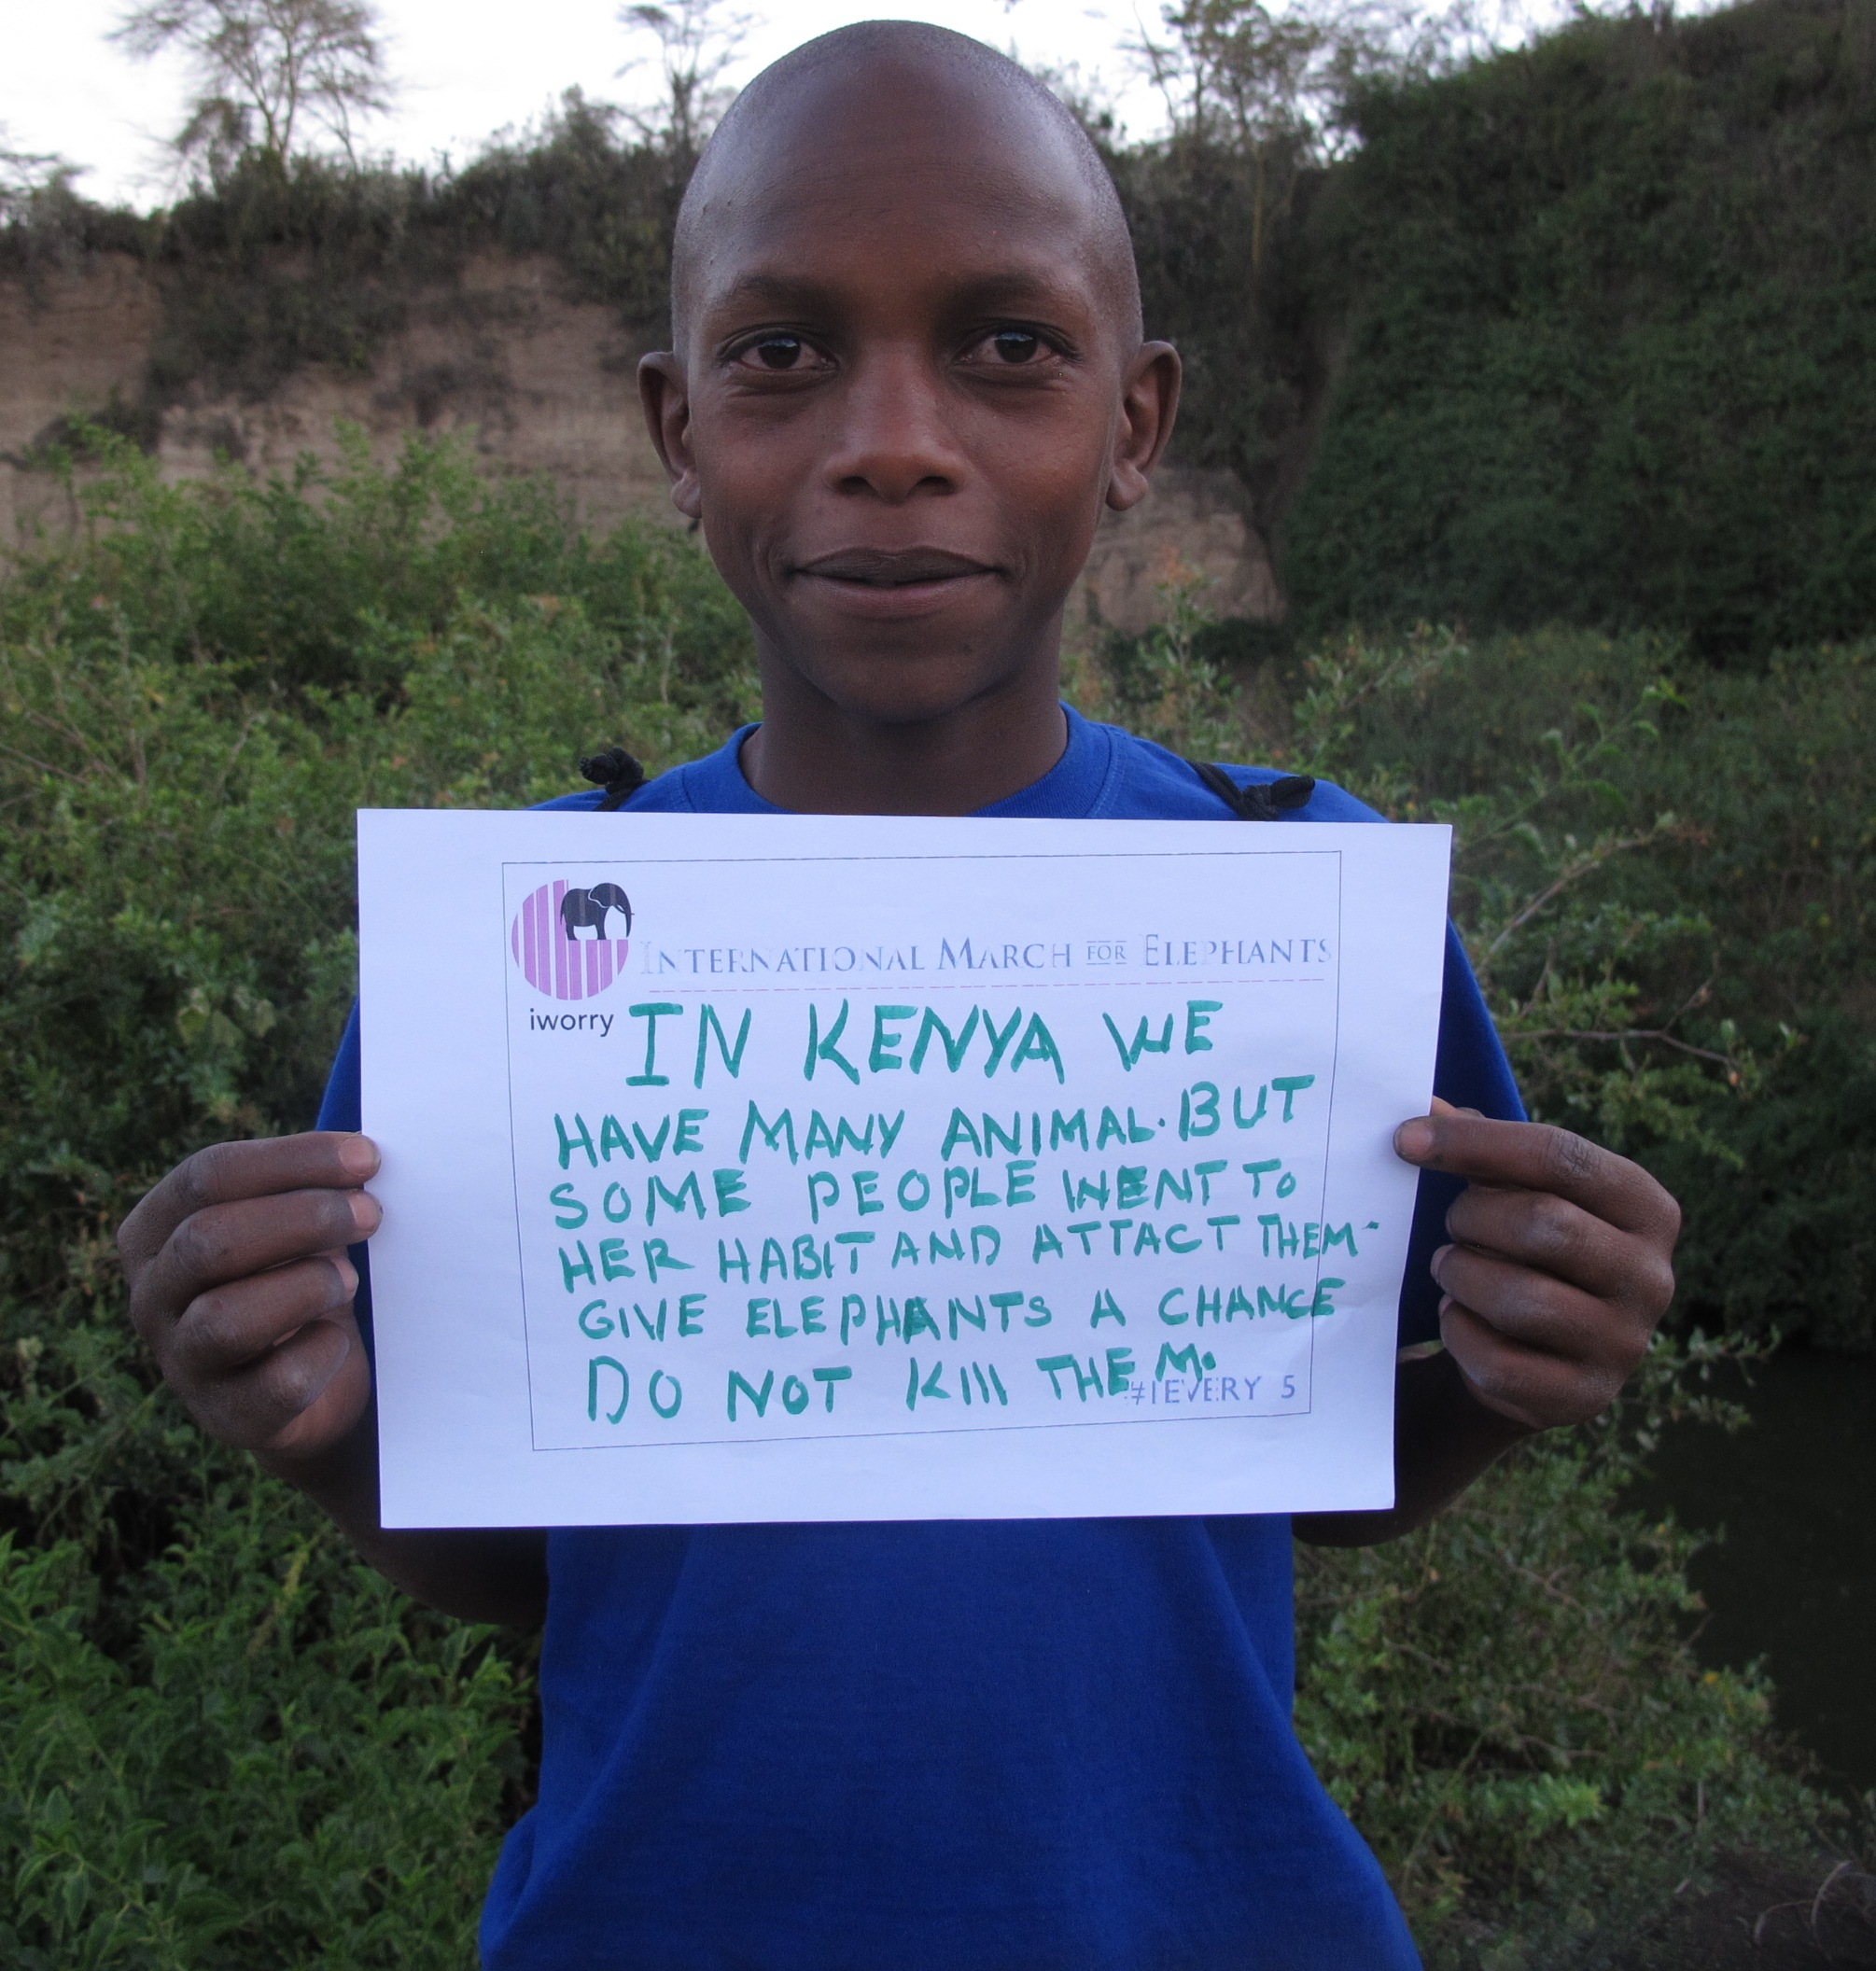 INTERNATIONAL MARCH FOR ELEPHANTS
iworry
IN KENYA WE
HAVE MANY ANIMAL. BUT
SOME PEOPLE WENT TO
HER HABIT AND ATTACT THEM.
GIVE ELEPHANTS A CHANCE
DO NOT KIll THEM.
#IEVERY 5